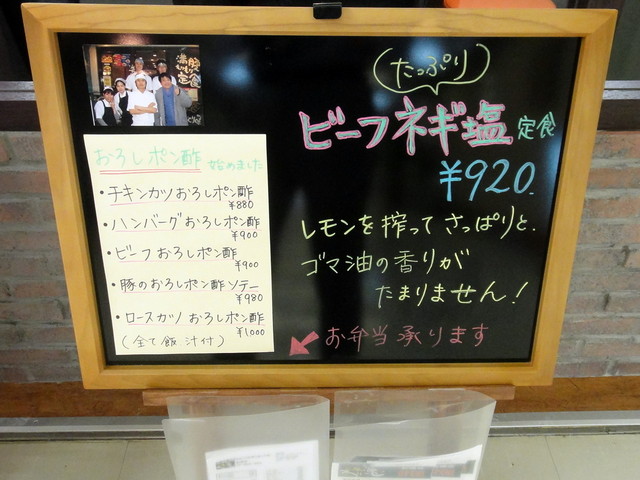 おろしポン酢 始めました
・チキンカツおろしポン酢
¥880
・ハンバーグおろしポン酢
¥900
・ビーフおろしポン酢
¥900
・豚のおろしポン酢ソテー
¥980
・ロースカツおろしポン酢
¥1,000
(全て飯汁付)
たっぷり
ビーフネギ塩定食
¥920.
レモンを搾ってさっぱりと、
ゴマ油の香りが
たまりません!
お弁当承ります